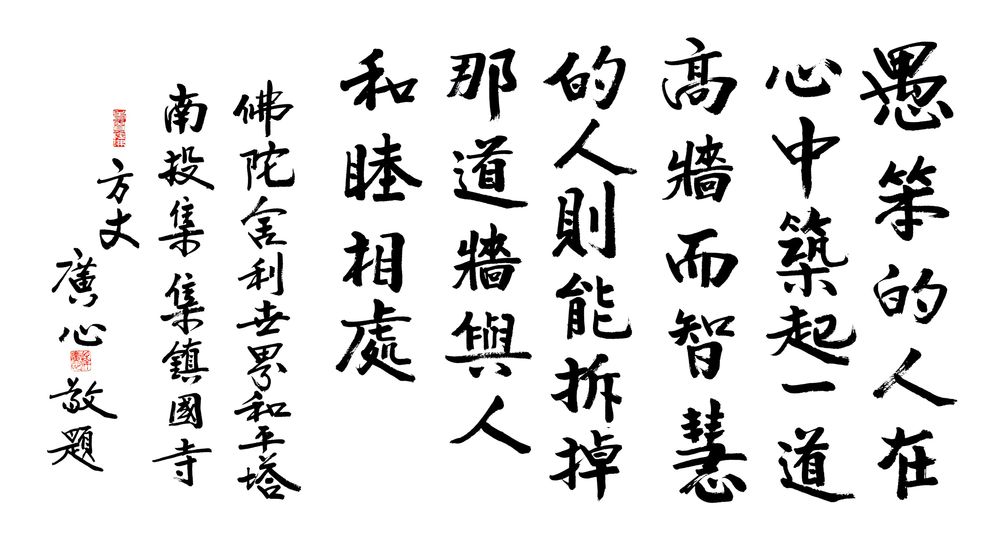 愚笨的人在
心中築起一道
高牆而智慧
的人則能拆掉
那道牆與人
和睦相處
佛陀舍利世界和平塔
南投集集鎮國寺
方丈
廣心
敬題